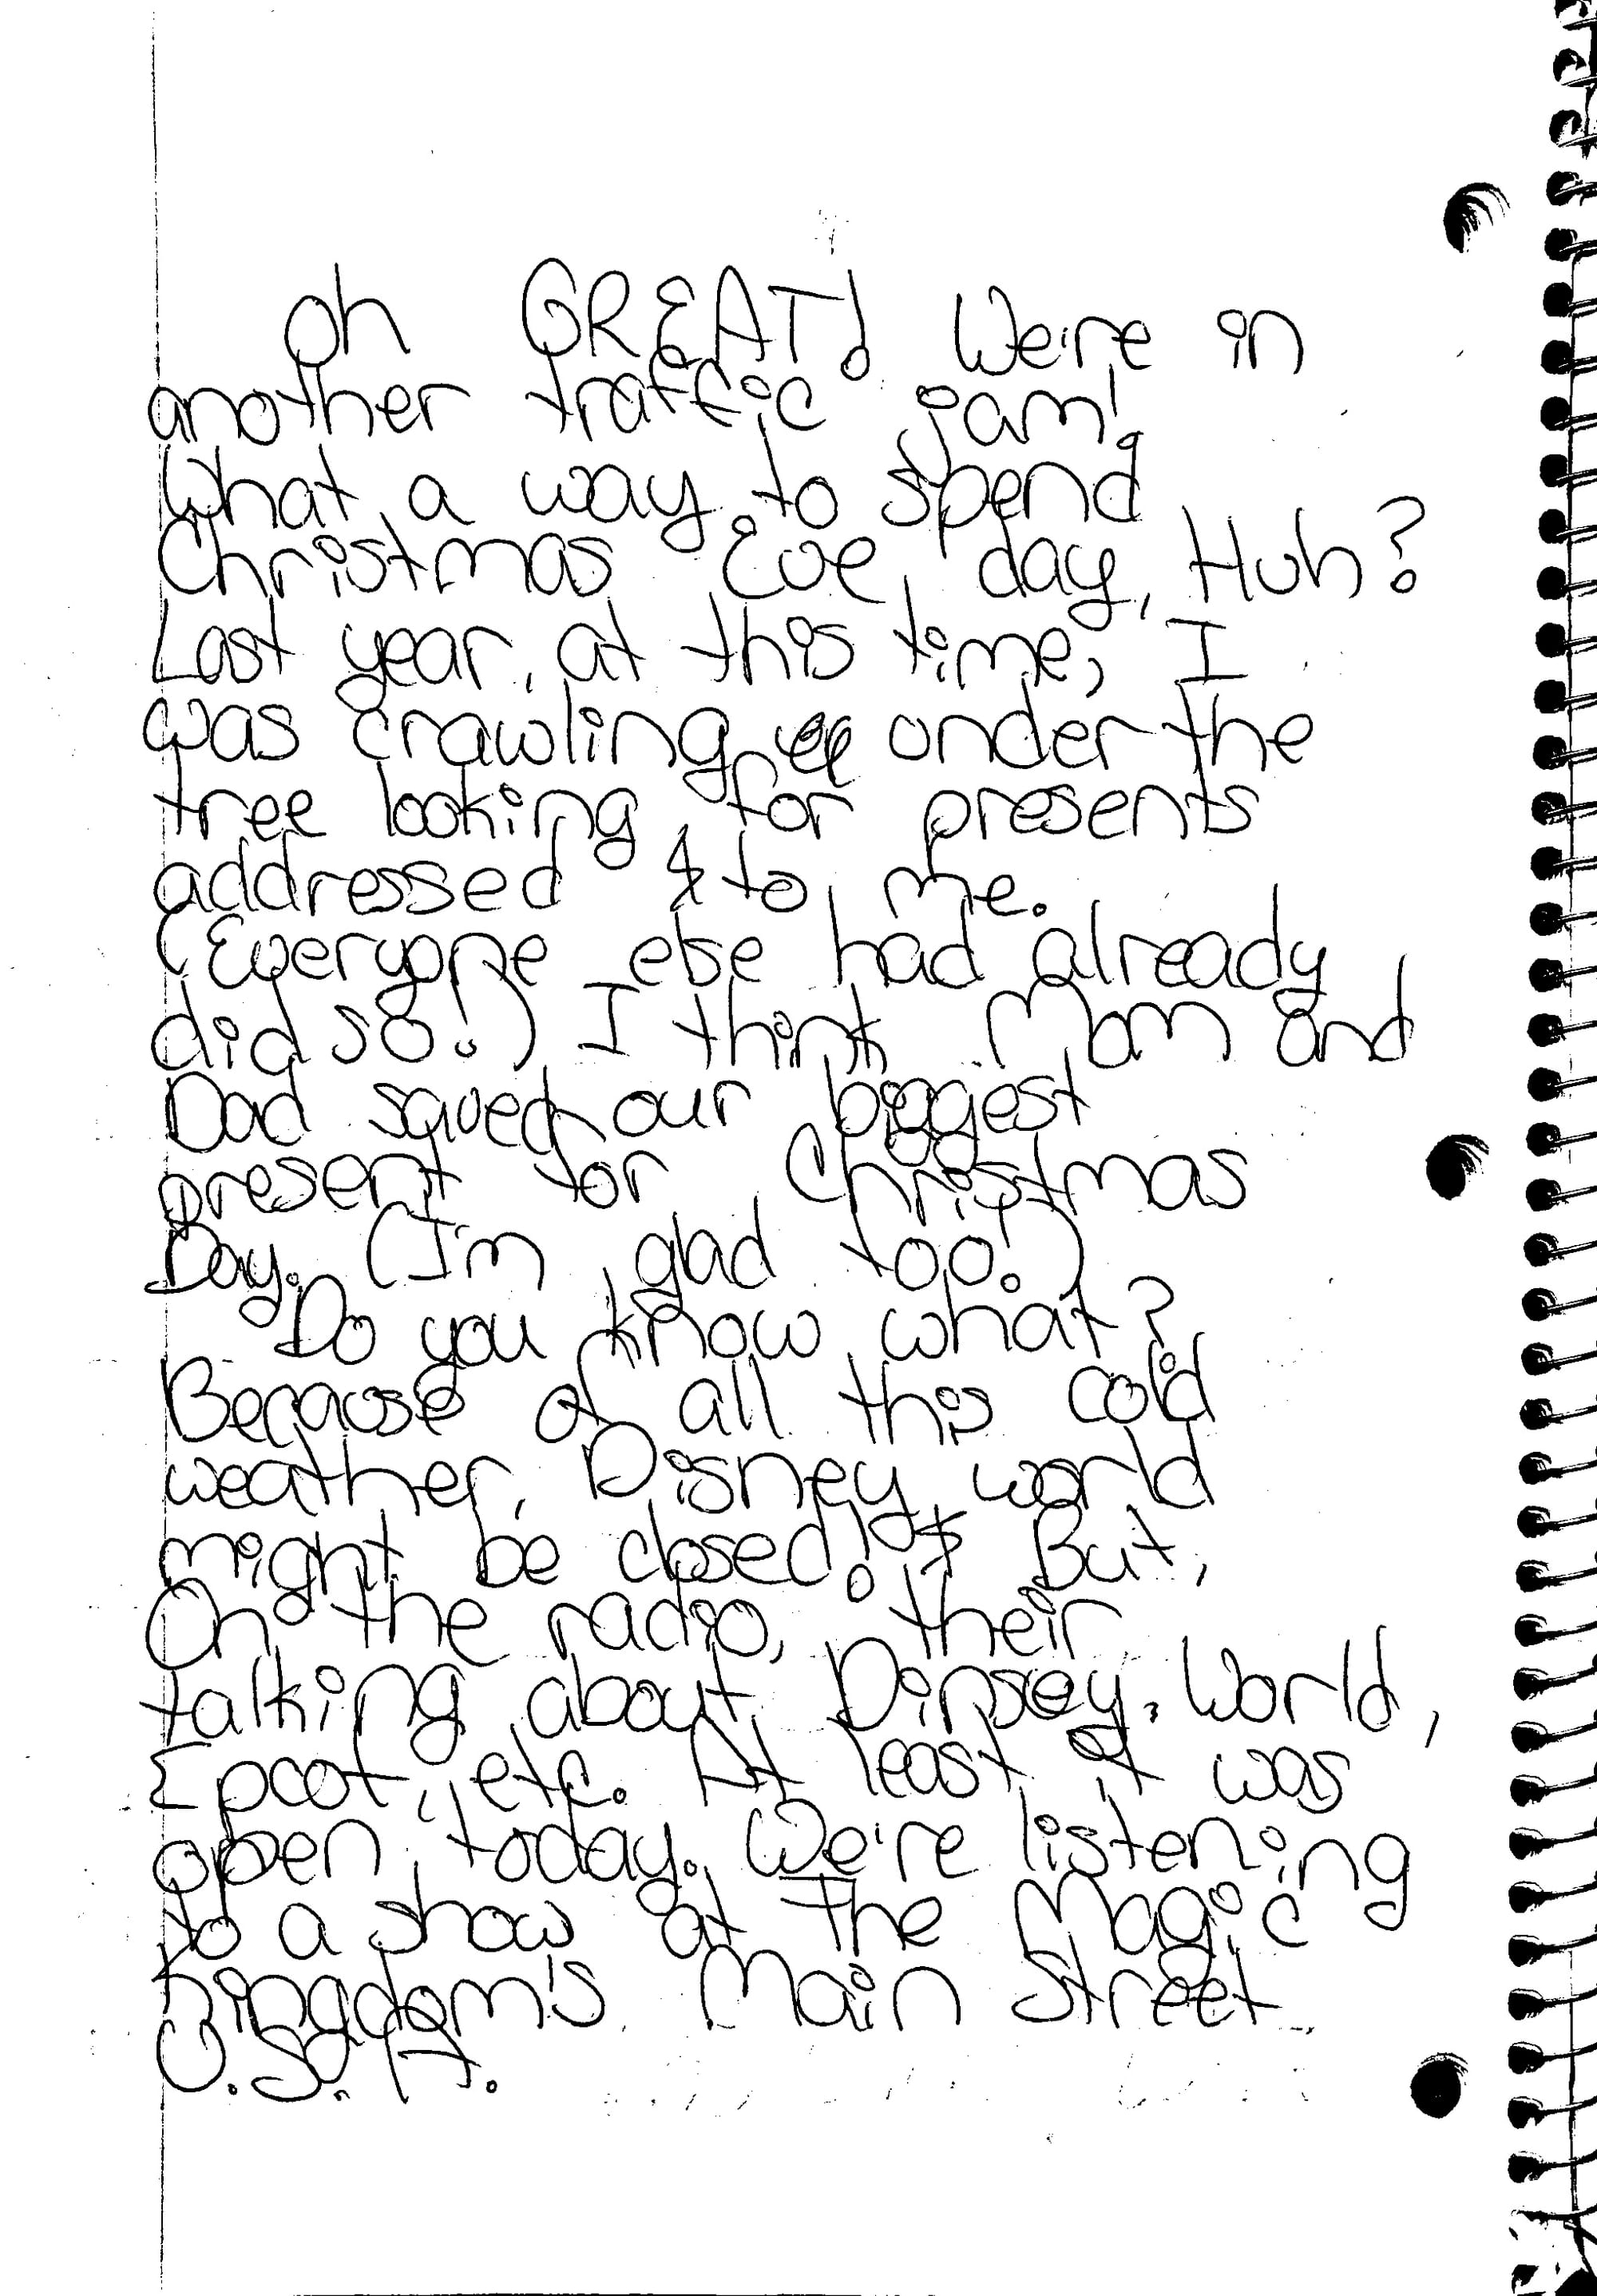 Oh GREAT! We're in
another traffic jam!
What a way to spend
Christmas Eve day, Huh?
Last year, at this time, I
was crawling under the
tree looking for presents
addressed to me.
(Everyone else had already
did so!) I think Mom and
Dad saved our biggest
present for Christmas
Day. (I'm glad too!)
Do you know what?
Because of all this cold
weather, Disney world
might be closed! But,
On the radio, their
talking about Dinsey World,
Epcot, etc. At least it was
open today. We're listening
to a show at The Magic
Kingdom's Main Street
U.S.A.